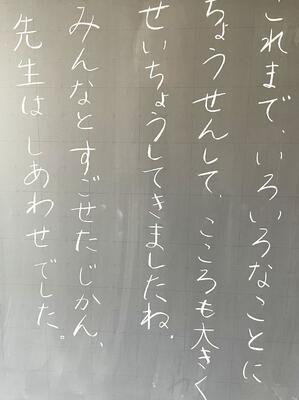 これまで、いろいろなことに
ちょうせんして、こころも大きく
せいちょうしてきましたね。
みんなとすごせたじかん、
先生はしあわせでした。